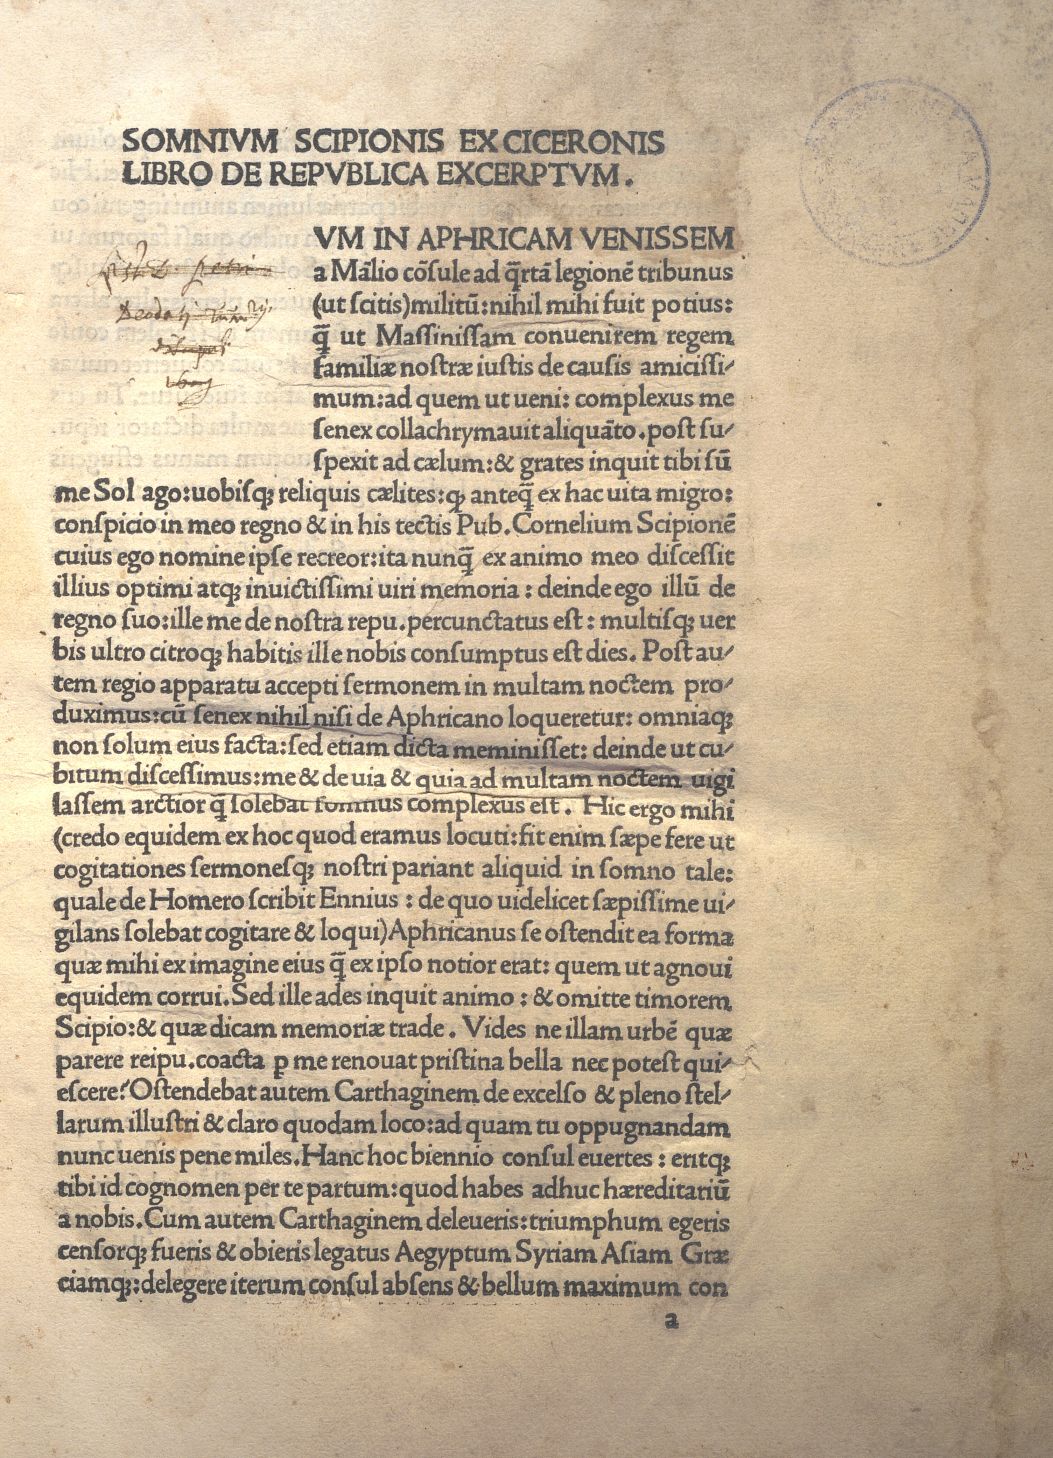 SOMNIVM SCIPIONIS EX CICERONIS
LIBRO DE REPVBLICA EXCERPTVM.
VM IN APHRICAM VENISSEM
a Mālio cōſule ad q̄rtā legionē tribunus
(ut ſcitis)militū:nihil mihi fuit potius:
q̄ ut Maſſiniſſam conuenirem regem
familiæ noſtræ iuſtis de cauſis amiciſſi⸗
mum:ad quem ut ueni: complexus me
ſenex collachrymauit aliquāto.poſt ſu⸗
ſpexit ad cælum:& grates inquit tibi ſū
me Sol ago:uobiſqꝫ reliquis cælites:ꝙ anteq̄ ex hac uita migro:
conſpicio in meo regno & in his tectis Pub.Cornelium Scipionē
cuius ego nomine ipſe recreor:ita nunq̄ ex animo meo diſceſſit
illius optimi atqꝫ inuictiſſimi uiri memoria: deinde ego illū de
regno ſuo:ille me de noſtra repu.percunctatus eſt: multiſqꝫ uer
bis ultro citroqꝫ habitis ille nobis conſumptus eſt dies. Poſt au⸗
tem regio apparatu accepti ſermonem in multam noctem pro⸗
duximus:cū ſenex nihil niſi de Aphricano loqueretur: omniaqꝫ
non ſolum eius facta:ſed etiam dicta meminiſſet: deinde ut cu⸗
bitum diſceſſimus:me & de uia & quia ad multam noctem uigi
laſſem arctior q̄ ſolebat ſomnus complexus eſt. Hic ergo mihi
(credo equidem ex hoc quod eramus locuti:fit enim ſæpe fere ut
cogitationes ſermoneſqꝫ noſtri pariant aliquid in ſomno tale:
quale de Homero ſcribit Ennius: de quo uidelicet ſæpiſſime ui⸗
gilans ſolebat cogitare & loqui)Aphricanus ſe oſtendit ea forma
quæ mihi ex imagine eius q̄ ex ipſo notior erat: quem ut agnoui
equidem corrui.Sed ille ades inquit animo: & omitte timorem
Scipio:& quæ dicam memoriæ trade. Vides ne illam urbē quæ
parere reipu.coacta ꝑ me renouat priſtina bella nec poteſt qui⸗
eſcere?Oſtendebat autem Carthaginem de excelſo & pleno ſtel⸗
larum illuſtri & claro quodam loco:ad quam tu oppugnandam
nunc uenis pene miles.Hanc hoc biennio conſul euertes: eritqꝫ
tibi id cognomen per te partum:quod habes adhuc hæreditariū
a nobis.Cum autem Carthaginem deleueris:triumphum egeris
cenſorqꝫ fueris & obieris legatus Aegyptum Syriam Aſiam Græ
ciamqꝫ:delegere iterum conſul abſens & bellum maximum con
a